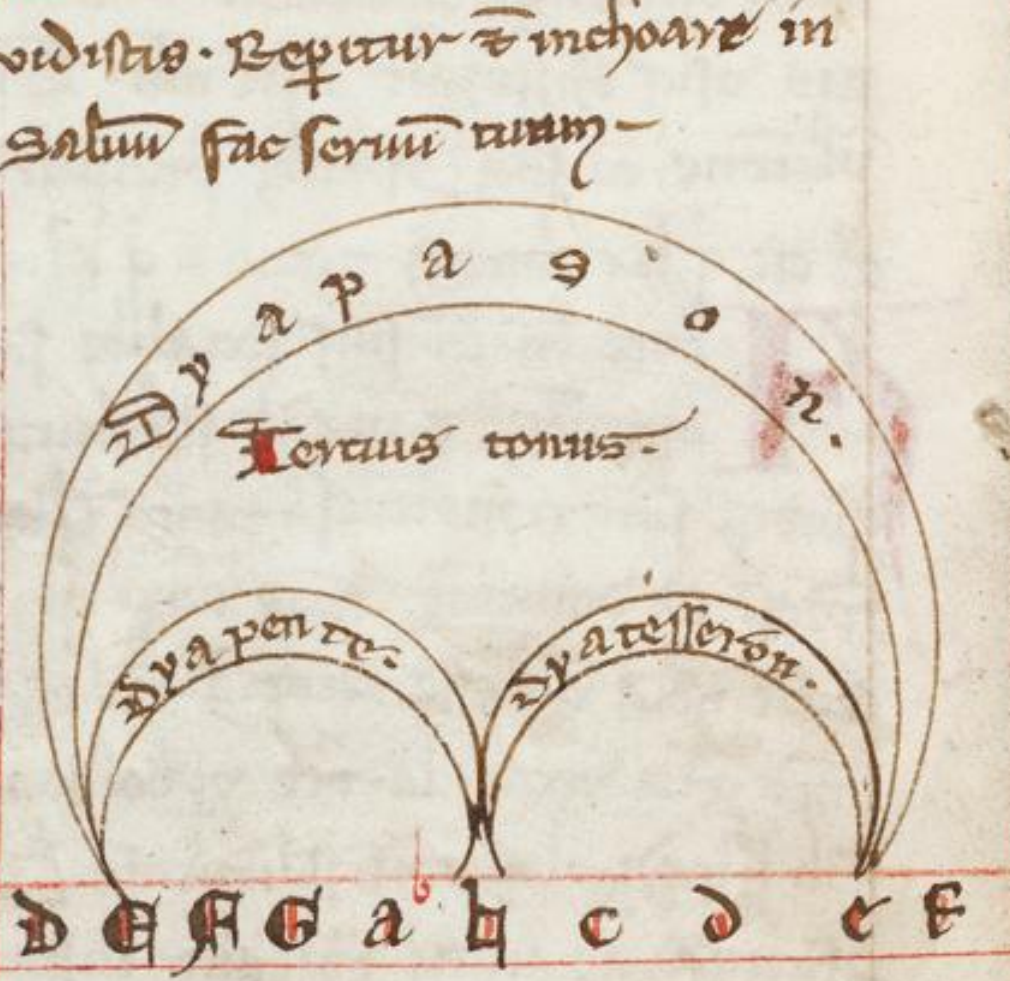 vidistis. Rep̱itur &̄ inchoare in
Saluū fac seruū tuum
Dyapason.
Tercius tonus.
dyapente. dyatesseron.
b
D E F G a ♮ c d e f